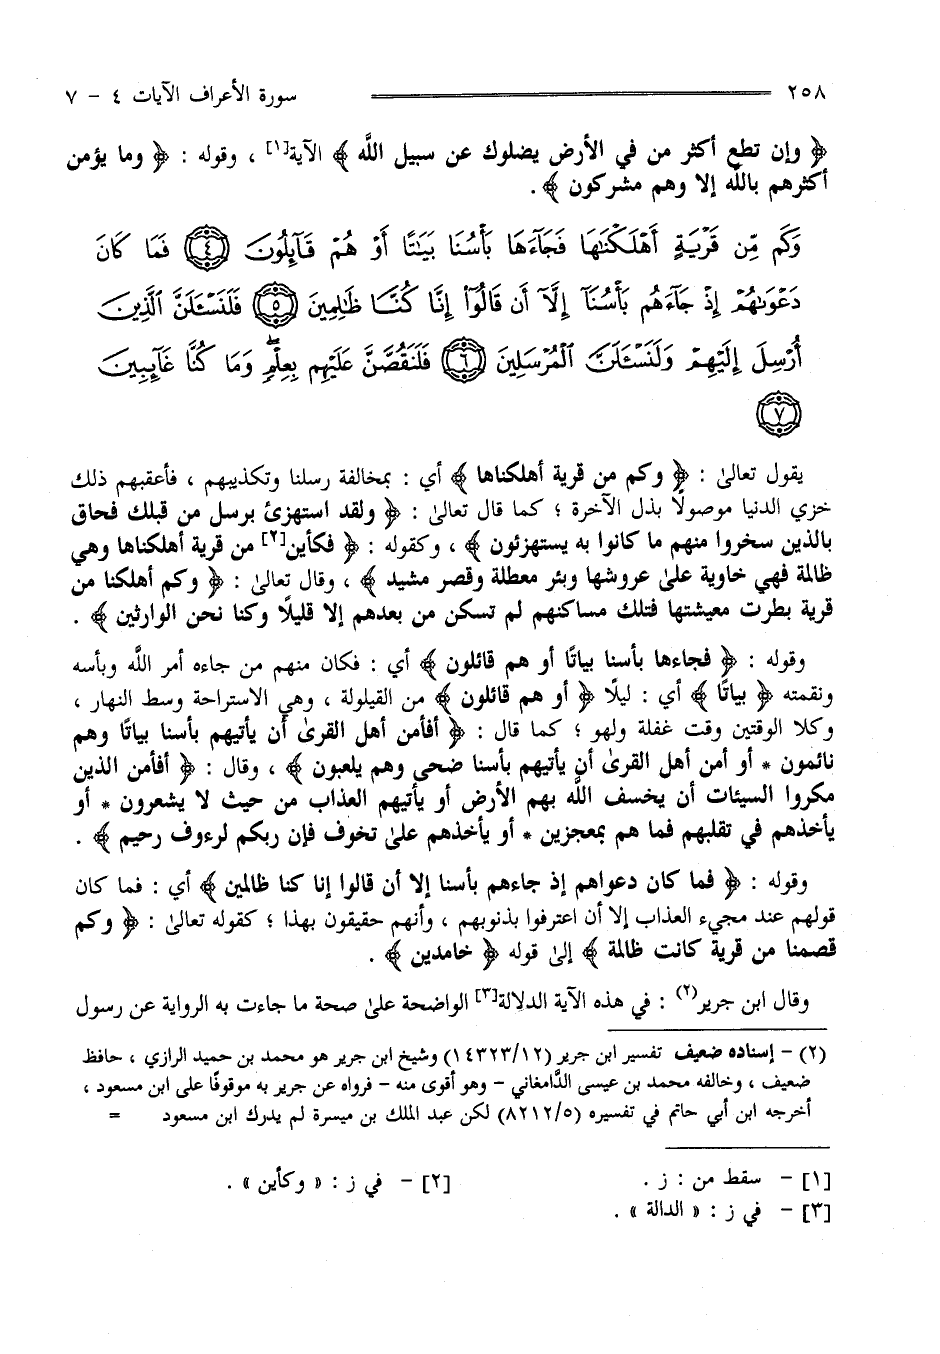 ٢٥٨ سورة الأعراف الآيات ٤ - ٧
﴿ وإن تطع أكثر من في الأرض يضلوك عن سبيل اللَّه ﴾ الآية[١] ، وقوله : ﴿ وما يؤمن
أكثرهم باللَّه إلا وهم مشركون ﴾ .
وَكَم مِّن قَرْيَةٍ أَهْلَكْنَٰهَا فَجَآءَهَا بَأْسُنَا بَيَٰتًا أَوْ هُمْ قَآئِلُونَ ٤ فَمَا كَانَ
دَعْوَىٰهُمْ إِذْ جَآءَهُم بَأْسُنَآ إِلَّآ أَن قَالُوٓا۟ إِنَّا كُنَّا ظَٰلِمِينَ ٥ فَلَنَسْـَٔلَنَّ الَّذِينَ
أُرْسِلَ إِلَيْهِمْ وَلَنَسْـَٔلَنَّ الْمُرْسَلِينَ ٦ فَلَنَقُصَّنَّ عَلَيْهِم بِعِلْمٍ ۖ وَمَا كُنَّا غَآئِبِينَ
٧
يقول تعالىٰ : ﴿ وكم من قرية أهلكناها ﴾ أي : بمخالفة رسلنا وتكذيبهم ، فأعقبهم ذلك
خزي الدنيا موصولًا بذل الآخرة ؛ كما قال تعالىٰ : ﴿ ولقد استهزئ برسل من قبلك فحاق
بالذين سخروا منهم ما كانوا به يستهزئون ﴾ ، وكقوله : ﴿ فكأين[٢] من قرية أهلكناها وهي
ظالمة فهي خاوية علىٰ عروشها وبئر معطلة وقصر مشيد ﴾ ، وقال تعالىٰ : ﴿ وكم أهلكنا من
قرية بطرت معيشتها فتلك مساكنهم لم تسكن من بعدهم إلا قليلًا وكنا نحن الوارثين ﴾ .
وقوله : ﴿ فجاءها بأسنا بياتًا أو هم قائلون ﴾ أي : فكان منهم من جاءه أمر اللَّه وبأسه
ونقمته ﴿ بياتًا ﴾ أي : ليلًا ﴿ أو هم قائلون ﴾ من القيلولة ، وهي الاستراحة وسط النهار ،
وكلا الوقتين وقت غفلة ولهو ؛ كما قال : ﴿ أفأمن أهل القرىٰ أن يأتيهم بأسنا بياتًا وهم
نائمون * أو أمن أهل القرىٰ أن يأتيهم بأسنا ضحى وهم يلعبون ﴾ ، وقال : ﴿ أفأمن الذين
مكروا السيئات أن يخسف اللَّه بهم الأرض أو يأتيهم العذاب من حيث لا يشعرون * أو
يأخذهم في تقلبهم فما هم بمعجزين * أو يأخذهم علىٰ تخوف فإن ربكم لرءوف رحيم ﴾ .
وقوله : ﴿ فما كان دعواهم إذ جاءهم بأسنا إلا أن قالوا إنا كنا ظالمين ﴾ أي : فما كان
قولهم عند مجيء العذاب إلا أن اعترفوا بذنوبهم ، وأنهم حقيقون بهذا ؛ كقوله تعالىٰ : ﴿ وكم
قصمنا من قرية كانت ظالمة ﴾ إلىٰ قوله ﴿ خامدين ﴾ .
وقال ابن جرير(٢) : في هذه الآية الدلالة[٣] الواضحة علىٰ صحة ما جاءت به الرواية عن رسول
(٢) - إسناده ضعيف تفسير ابن جرير (١٤٣٢٣/١٢) وشيخ ابن جرير هو محمد بن حميد الرازي ، حافظ
ضعيف ، وخالفه محمد بن عيسى الدَّامغاني - وهو أقوى منه - فرواه عن جرير به موقوفًا على ابن مسعود ،
أخرجه ابن أبي حاتم في تفسيره (٨٢١٢/٥) لكن عبد الملك بن ميسرة لم يدرك ابن مسعود =
[١] - سقط من : ز . [٢] - في ز : « وكأين » .
[٣] - في ز : « الدالة » .